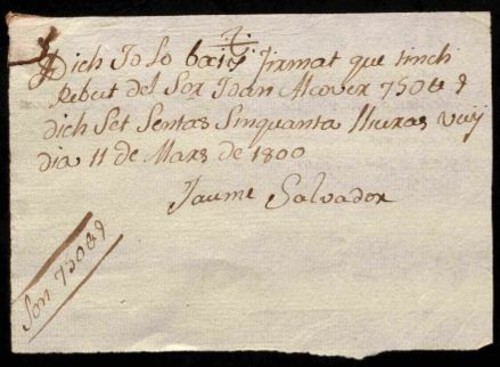 Dich Jo lo baix firmat que tinch
Rebut del Sor Joan Alcover 750 ll
dich Set Sentas Sinquanta lliuras vuij
dia 11 de Mars de 1800
Jaume Salvador
Son 750 ll